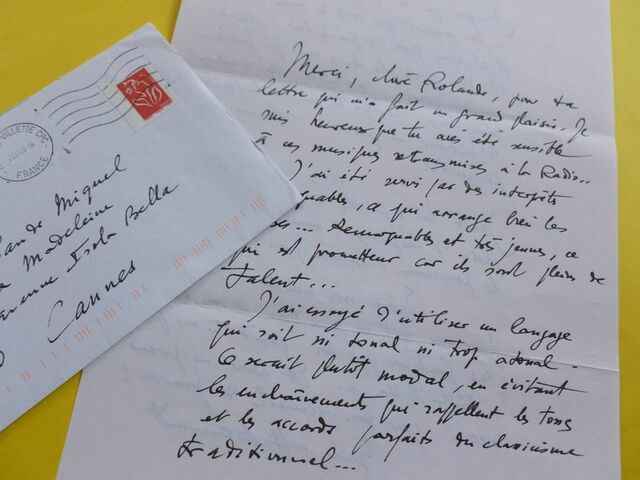 VILLETTE CDC
FRANCE
Miquel
Madeleine
Isola Bella
Cannes
Merci, chère Rolande, pour ta
lettre qui m'a fait un grand plaisir. Je
suis heureux que tu aies été sensible
à ces musiques retransmises à la Radio..
J'ai été servi par des interprètes
ce qui arrange bien les
Remarquables et très jeunes, ce
qui est prometteur car ils sont pleins de
talent...
J'ai essayé d'utiliser un langage
qui soit ni tonal ni trop atonal.
Ce serait plutôt modal, en évitant
les enchaînements qui rappellent les tons
et les accords parfaits du classicisme
traditionnel...